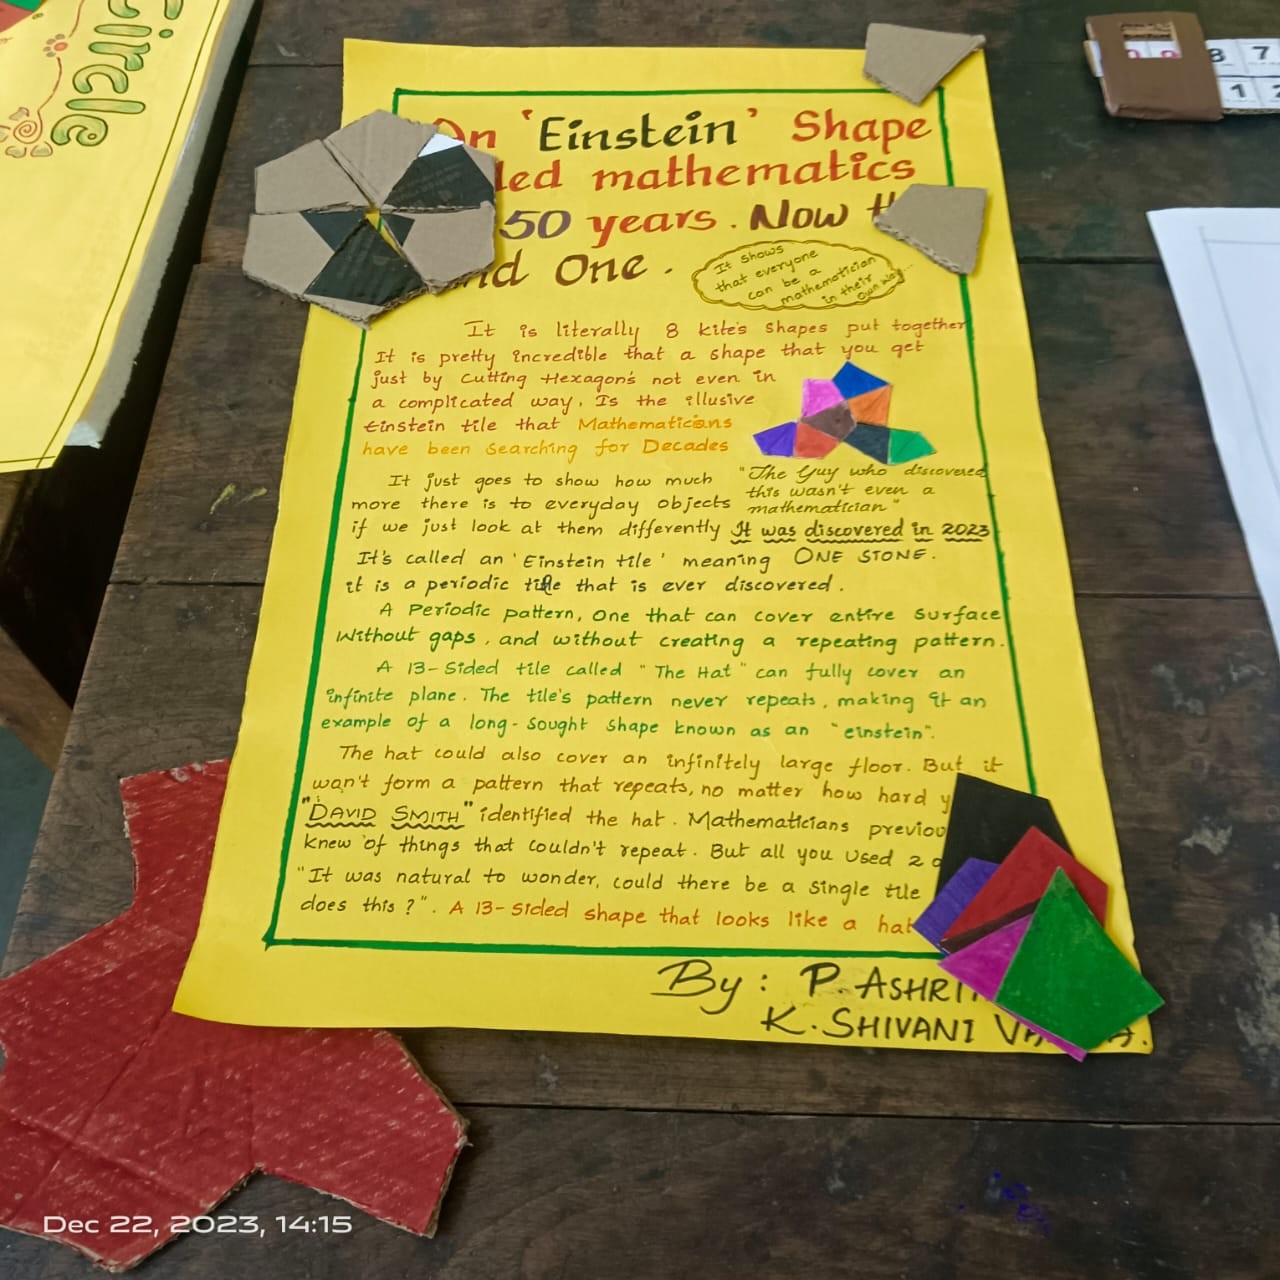 Circle
On 'Einstein' Shape
led mathematics
50 years. Now
nd One.
It shows
that everyone
can be a
mathematician
in their
own way...
It is literally 8 kite's shapes put together
It is pretty incredible that a shape that you get
just by cutting Hexagon's not even in
a complicated way, Is the illusive
Einstein tile that Mathematicians
have been searching for Decades
It just goes to show how much
more there is to everyday objects
"The Guy who discovered
this wasn't even a
mathematician"
if we just look at them differently It was discovered in 2023
It's called an 'Einstein tile' meaning ONE STONE.
it is a periodic tile that is ever discovered.
A Periodic pattern, one that can cover entire surface
Without gaps, and without creating a repeating pattern.
A 13-Sided tile called "The Hat" can fully cover an
infinite plane. The tile's pattern never repeats, making it an
example of a long-sought shape known as an "einstein".
The hat could also cover an infinitely large floor. But it
wan't form a pattern that repeats, no matter how hard y
"DAVID SMITH" identified the hat. Mathematicians previou
knew of things that couldn't repeat. But all you used 2
"It was natural to wonder, could there be a single tile
does this?". A 13-Sided shape that looks like a hat
By: P. ASHRI
K. SHIVANI VA A.
8 7
1 2
Dec 22, 2023, 14:15